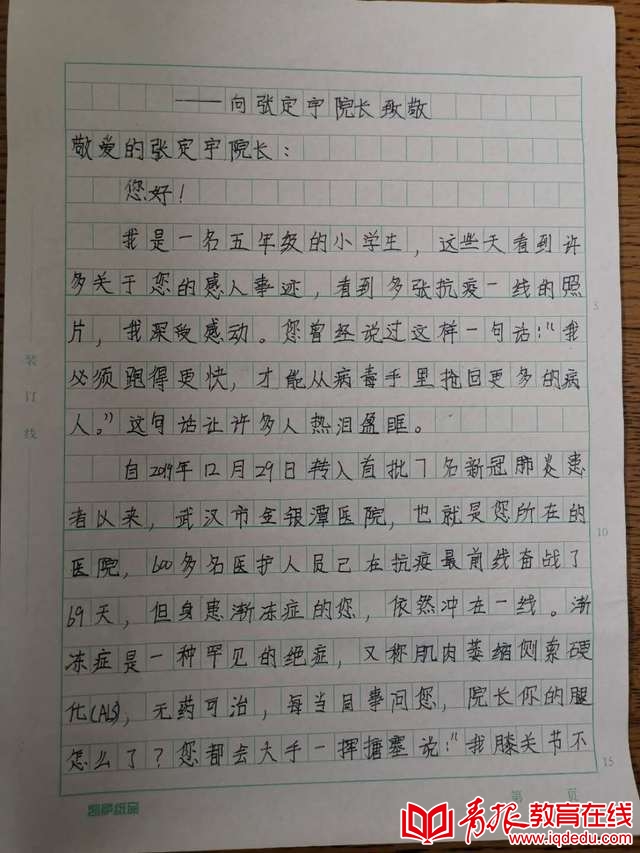 ——向张定宇院长致敬
敬爱的张定宇院长：
您好！
我是一名五年级的小学生，这些天看到许
多关于您的感人事迹，看到多张抗疫一线的照
片，我深受感动。您曾经说过这样一句话：“我
必须跑得更快，才能从病毒手里抢回更多的病
人。”这句话让许多人热泪盈眶。
自2019年12月29日转入首批7名新冠肺炎患
者以来，武汉市金银潭医院，也就是您所在的
医院，600多名医护人员已在抗疫最前线奋战了
69天，但身患渐冻症的您，依然冲在一线。渐
冻症是一种罕见的绝症，又称肌肉萎缩侧索硬
化(ALS)，无药可治，每当同事问您，院长你的腿
怎么了？您都会大手一挥搪塞说：“我膝关节不
装
订
线
5
10
15
凯萨纸品
第 页
青报教育在线
www.iqdedu.com